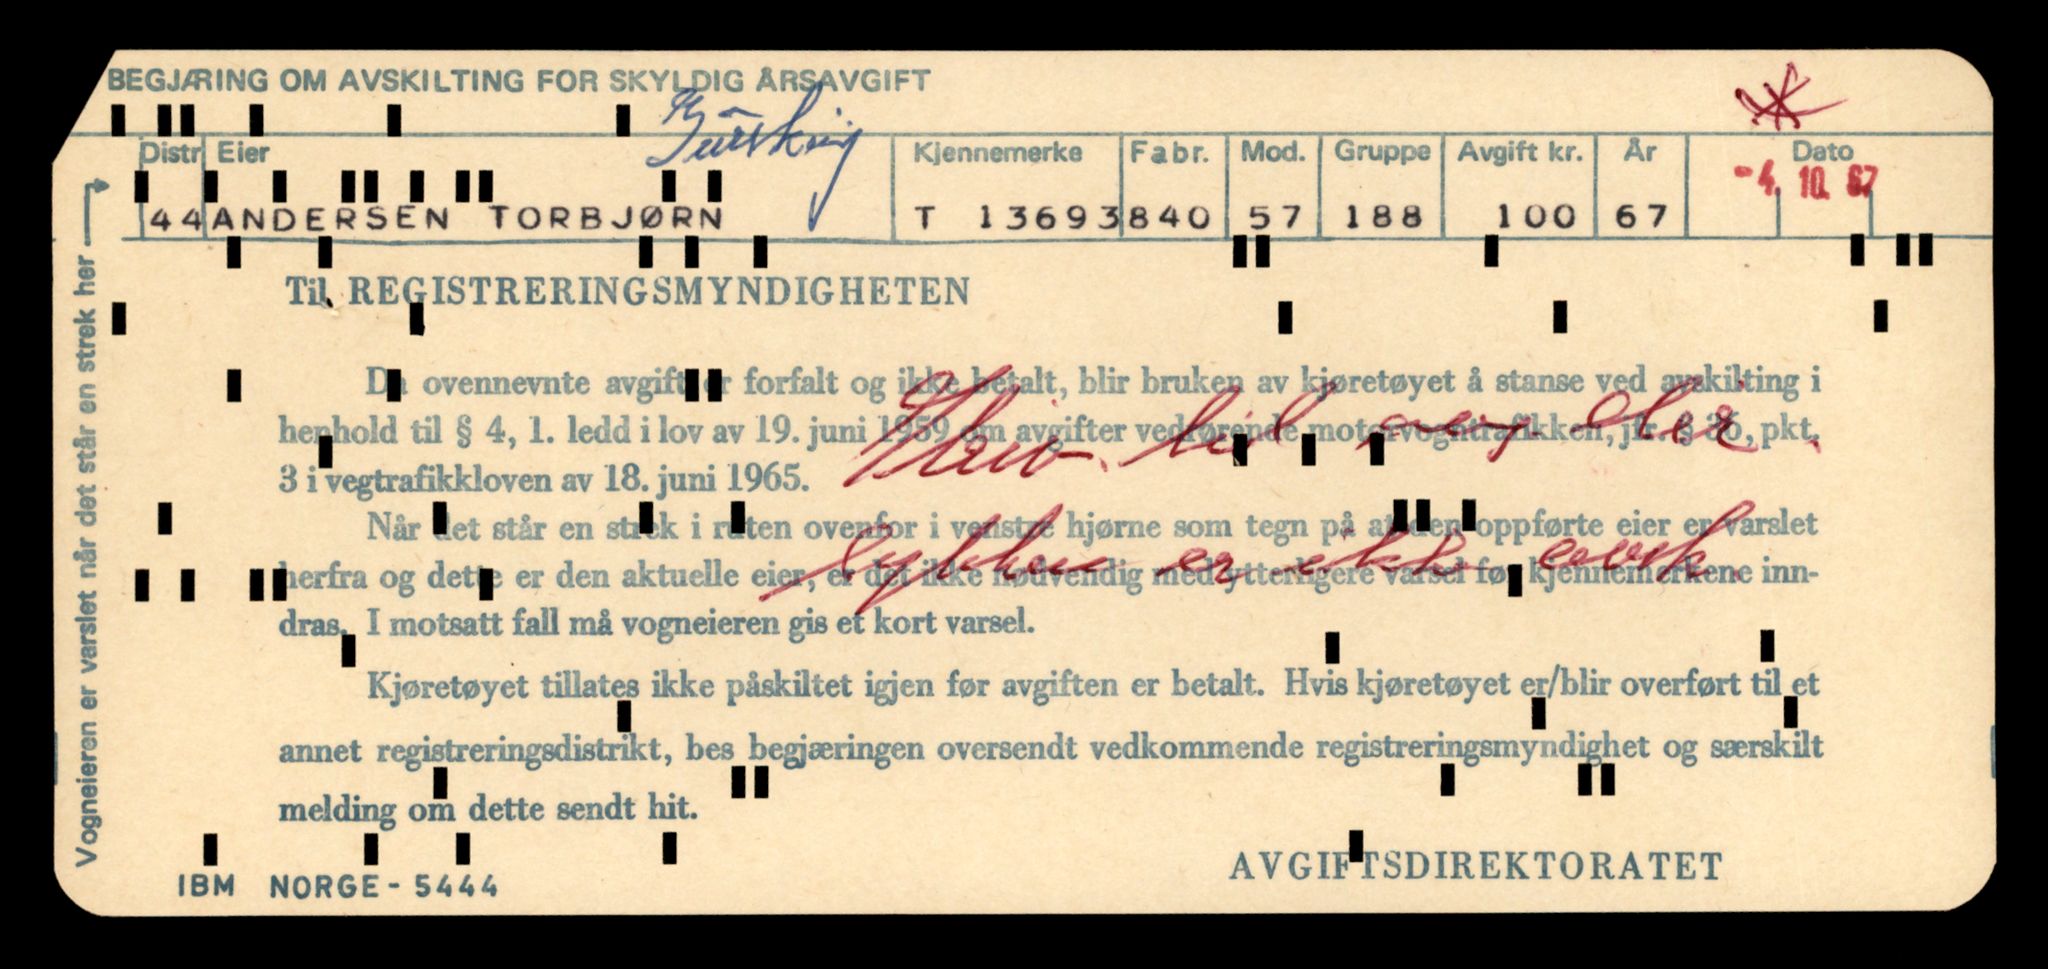 BEGJÆRING OM AVSKILTING FOR SKYLDIG ÅRSAVGIFT
Gurskøy
Distr Eier Kjennemerke Fabr. Mod. Gruppe Avgift kr. År Dato
-4. 10. 67
44 ANDERSEN TORBJØRN T 13693 840 57 188 100 67
Vogneieren er varslet når det står en strek her
Til REGISTRERINGSMYNDIGHETEN
Da ovennevnte avgift er forfalt og ikke betalt, blir bruken av kjøretøyet å stanse ved avskilting i
henhold til § 4, 1. ledd i lov av 19. juni 1959 om avgifter vedrørende motorvogntrafikken, jfr. § 36, pkt.
3 i vegtrafikkloven av 18. juni 1965.
Når det står en strek i ruten ovenfor i venstre hjørne som tegn på at den oppførte eier er varslet
herfra og dette er den aktuelle eier, er det ikke nødvendig med ytterligere varsel før kjennemerkene inn-
dras. I motsatt fall må vogneieren gis et kort varsel.
Kjøretøyet tillates ikke påskiltet igjen før avgiften er betalt. Hvis kjøretøyet er/blir overført til et
annet registreringsdistrikt, bes begjæringen oversendt vedkommende registreringsmyndighet og særskilt
melding om dette sendt hit.
AVGIFTSDIREKTORATET
IBM NORGE - 5444